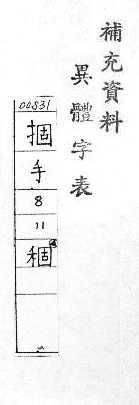 補充資料
異體字表
00831
手
8
11
稒